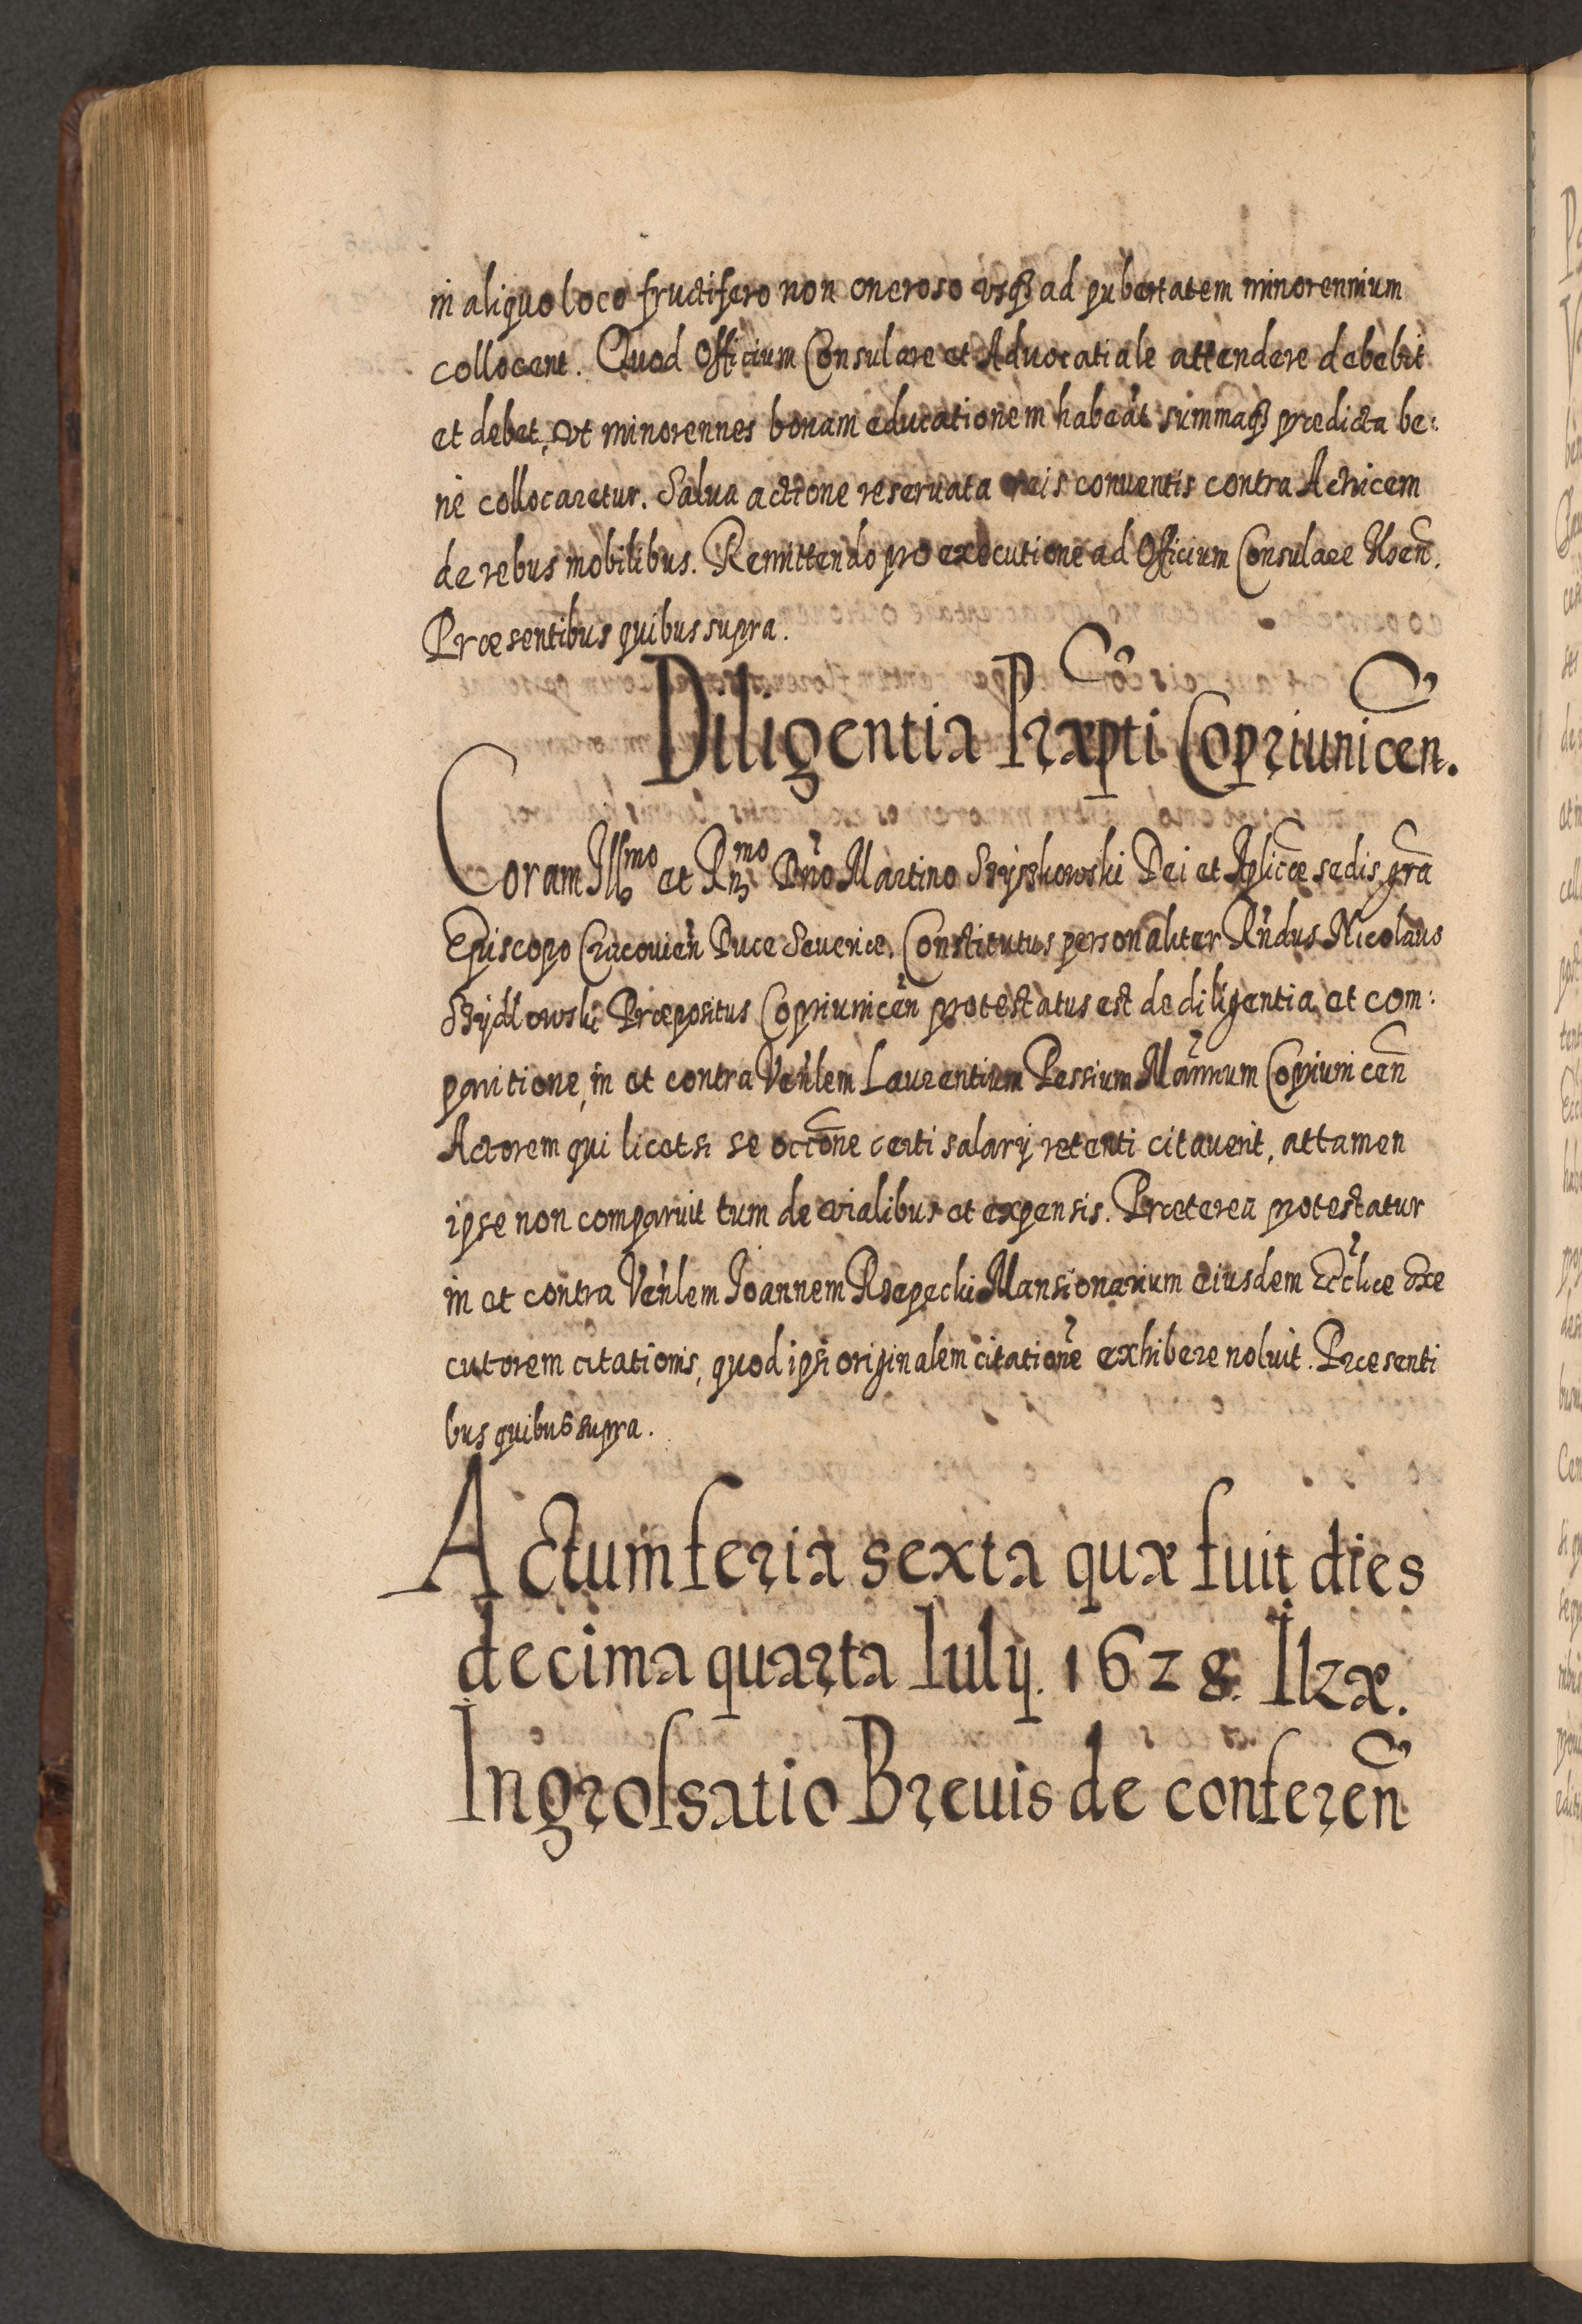 in aliquo loco fructifero non oneroso vsq; ad pubertatem minorennium
collocent. Quod Officium Consulare et Aduocatiale attendere debebit
et debet, vt minorennes bonam educationem habeãt summaq; prædicta be:
ne collocaretur. Salua actione reseruata reis conuentis contra Actricem
de rebus mobilibus. Remittendo pro executione ad Officium Consulare Ilzen̄.
Præsentibus quibus supra.
Diligentia Præpti Copriunicen̄.
Coram Illmo et Rmo Dn̄o Martino Szyszkowski Dei et Aplicæ sedis gr̄a
Episcopo Cracouien̄ Duce Seueriæ. Constitutus personaliter Rn̄dus Nicolaus
Szydlowski Præpositus Copriunicen̄ protestatus est de diligentia et com:
paritione, in et contra Ven̄lem Laurentium Pessium Man̄rium Copriunicen̄
Actorem qui licet si se occōne certi salarij retenti citauerit, attamen
ipse non comparuit tum de vialibus et expensis. Præterea protestatur
in et contra Ven̄lem Ioannem Rzepecki Mansionarium eiusdem Ecclīæ Exe
cutorem citationis, quod ipsi originalem citationē exhibere noluit. Præsenti
bus quibus supra.
Actum feria sexta quæ fuit dies
decima quarta Iulij. 1628. Ilzæ.
Ingrossatio Breuis de conferen̄